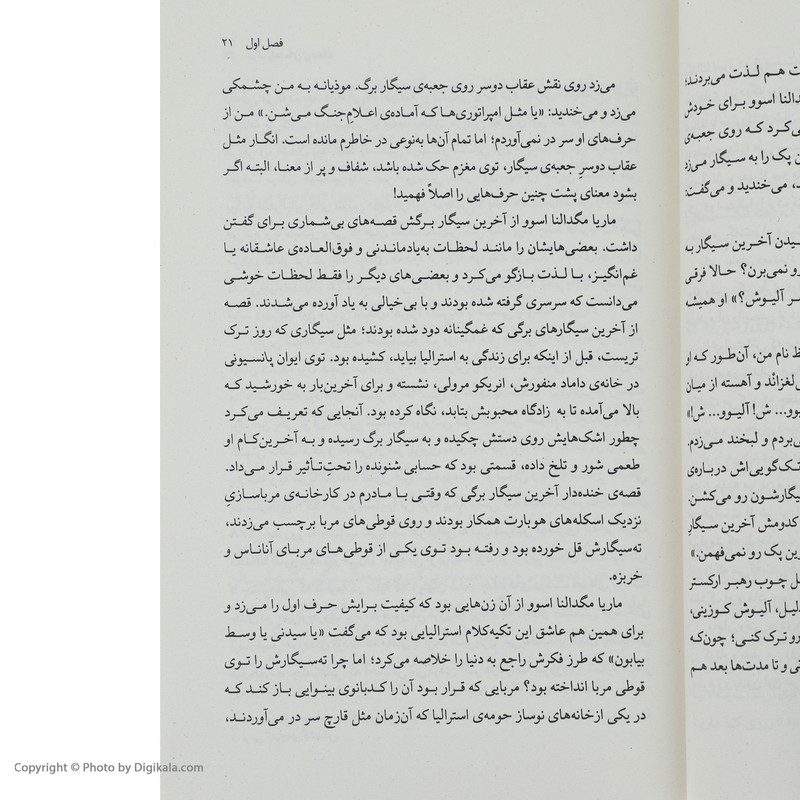 فصل اول ۲۱
می‌زد روی نقش عقاب دوسر روی جعبه‌ی سیگار برگ. موذیانه به من چشمکی
می‌زد و می‌خندید: «یا مثل امپراتوری‌ها که آماده‌ی اعلامِ‌جنگ می‌شن.» من از
حرف‌های او سر در نمی‌آوردم؛ اما تمام آن‌ها به‌نوعی در خاطرم مانده است. انگار مثل
عقاب دوسرِ جعبه‌ی سیگار، توی مغزم حک شده باشد، شفاف و پر از معنا، البته اگر
بشود معنای پشت چنین حرف‌هایی را اصلاً فهمید!
ماریا مگدالنا اسوو از آخرین سیگار برگش قصه‌های بی‌شماری برای گفتن
داشت. بعضی‌هایشان را مانند لحظات به‌یادماندنی و فوق‌العاده‌ی عاشقانه یا
غم‌انگیز، با لذت بازگو می‌کرد و بعضی‌های دیگر را فقط لحظات خوشی
می‌دانست که سرسری گرفته شده بودند و با بی‌خیالی به یاد آورده می‌شدند. قصه
از آخرین سیگارهای برگی که غمگینانه دود شده بودند؛ مثل سیگاری که روز ترک
تریست، قبل از اینکه برای زندگی به استرالیا بیاید، کشیده بود. توی ایوان پانسیونی
در خانه‌ی داماد منفورش، انریکو مرولی، نشسته و برای آخرین‌بار به خورشید که
بالا می‌آمده تا به زادگاه محبوبش بتابد، نگاه کرده بود. آنجایی که تعریف می‌کرد
چطور اشک‌هایش روی دستش چکیده و به سیگار برگ رسیده و به آخرین‌کام او
طعمی شور و تلخ داده، قسمتی بود که حسابی شنونده را تحتِ‌تأثیر قرار می‌داد.
قصه‌ی خنده‌دار آخرین سیگار برگی که وقتی با مادرم در کارخانه‌ی مرباسازیِ
نزدیک اسکله‌های هوبارت همکار بودند و روی قوطی‌های مربا برچسب می‌زدند،
ته‌سیگارش قل خورده بود و رفته بود توی یکی از قوطی‌های مربای آناناس و
خربزه.
ماریا مگدالنا اسوو از آن زن‌هایی بود که کیفیت برایش حرف اول را می‌زد و
برای همین هم عاشق این تکیه‌کلام استرالیایی بود که می‌گفت «یا سیدنی یا وسط
بیابون» که طرز فکرش راجع به دنیا را خلاصه می‌کرد؛ اما چرا ته‌سیگارش را توی
قوطی مربا انداخته بود؟ مربایی که قرار بود آن را کدبانوی بینوایی باز کند که
در یکی از خانه‌های نوساز حومه‌ی استرالیا که آن‌زمان مثل قارچ سر در می‌آوردند،
ت هم لذت می‌بردند؛
دالنا اسوو برای خودش
ی‌کرد که روی جعبه‌ی
ن پک را به سیگار می‌زد
، می‌خندید و می‌گفت:
یدن آخرین سیگار به
رو نمی‌برن؟ حالا فرقی
ر آلیوش؟» او همیشه
ظ نام من، آن‌طور که او
ی‌لغزاند و آهسته از میان
یوو... ش! آلیوو... ش!»
ی‌بردم و لبخند می‌زدم.
تک‌گویی‌اش درباره‌ی
سیگارشون رو می‌کشن.
کدومش آخرین سیگارِ
رین پک رو نمی‌فهمن.»
ل چوب رهبر ارکستر
دلیل، آلیوش کوزینی،
رو ترک کنی؛ چون‌که
نی و تا مدت‌ها بعد هم
Copyright © Photo by Digikala.com